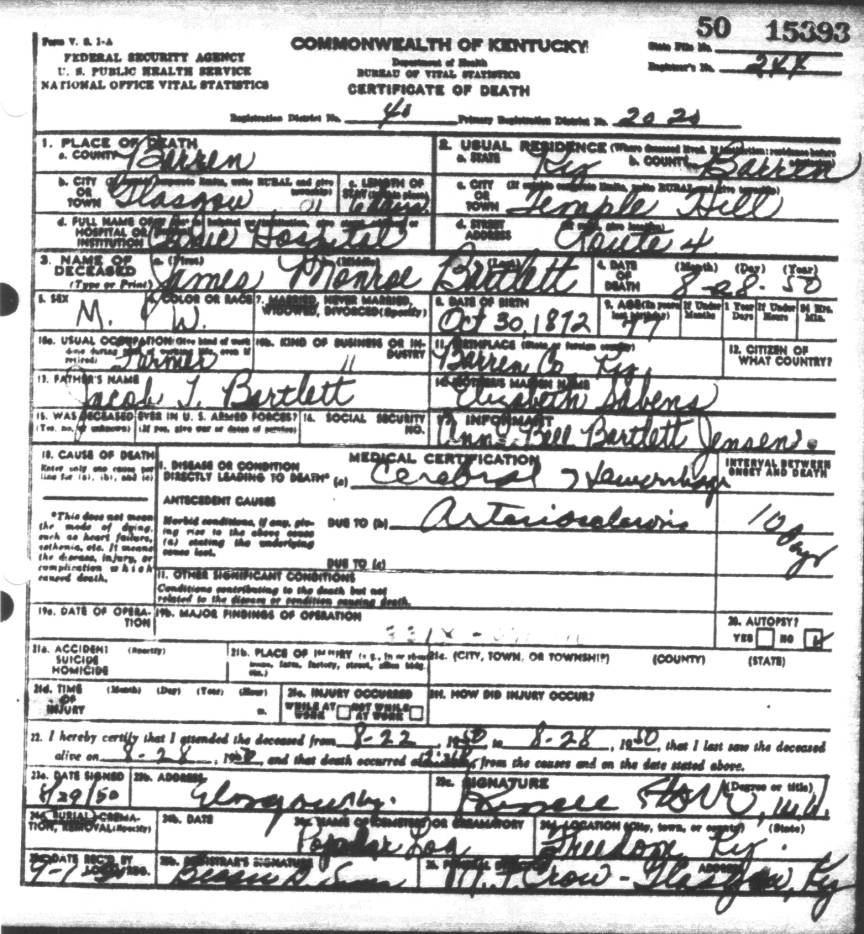 50 15393
Form V. S. 1-A
FEDERAL SECURITY AGENCY
U. S. PUBLIC HEALTH SERVICE
NATIONAL OFFICE VITAL STATISTICS
COMMONWEALTH OF KENTUCKY
Department of Health
BUREAU OF VITAL STATISTICS
CERTIFICATE OF DEATH
State File No.
Registrar's No. 244
Registration District No. 40 Primary Registration District No. 2020
1. PLACE OF DEATH
a. COUNTY Barren
2. USUAL RESIDENCE (Where deceased lived. If institution: residence before
a. STATE Ky b. COUNTY Barren
b. CITY OR TOWN Glasgow
c. LENGTH OF 6 days
c. CITY OR TOWN Temple Hill
d. FULL NAME OF HOSPITAL OR INSTITUTION Hospital
d. STREET ADDRESS Route 4
3. NAME OF DECEASED (Type or Print)
a. (First) James (Middle) Monroe (Last) Bartlett
4. DATE OF DEATH (Month) (Day) (Year) 8-28-50
5. SEX M.
6. COLOR OR RACE W.
7. MARRIED, NEVER MARRIED, WIDOWED, DIVORCED (Specify)
8. DATE OF BIRTH Oct 30, 1872
9. AGE (In years last birthday) 77
If Under 1 Year Months Days
If Under 24 Hrs. Hours Min.
10a. USUAL OCCUPATION (Give kind of work Farmer
10b. KIND OF BUSINESS OR INDUSTRY "
11. BIRTHPLACE (State or foreign country) Barren Co Ky.
12. CITIZEN OF WHAT COUNTRY?
13. FATHER'S NAME
Jacob T. Bartlett
14. MOTHER'S MAIDEN NAME
Elizabeth Sabens
15. WAS DECEASED EVER IN U. S. ARMED FORCES?
(Yes, no, or unknown) (If yes, give war or dates of service)
16. SOCIAL SECURITY NO.
17. INFORMANT
Anna Bell Bartlett Jensen.
18. CAUSE OF DEATH
Enter only one cause per line for (a), (b), and (c)
MEDICAL CERTIFICATION
INTERVAL BETWEEN ONSET AND DEATH
I. DISEASE OR CONDITION DIRECTLY LEADING TO DEATH* (a) Cerebral Hemorrhage
*This does not mean the mode of dying, such as heart failure, asthenia, etc. It means the disease, injury, or complication which caused death.
ANTECEDENT CAUSES
Morbid conditions, if any, giving rise to the above cause (a) stating the underlying cause last.
DUE TO (b) Arteriosclerosis
10 days
DUE TO (c)
11. OTHER SIGNIFICANT CONDITIONS
Conditions contributing to the death but not related to the disease or condition causing death.
19a. DATE OF OPERATION
19b. MAJOR FINDINGS OF OPERATION
20. AUTOPSY?
YES NO
21a. ACCIDENT SUICIDE HOMICIDE (Specify)
21b. PLACE OF INJURY (e.g., in or about home, farm, factory, street, office bldg. etc.)
21c. (CITY, TOWN, OR TOWNSHIP) (COUNTY) (STATE)
21d. TIME OF INJURY (Month) (Day) (Year) (Hour) m.
21e. INJURY OCCURRED
WHILE AT WORK NOT WHILE AT WORK
21f. HOW DID INJURY OCCUR?
22. I hereby certify that I attended the deceased from 8-22, 1950 to 8-28, 1950, that I last saw the deceased
alive on 8-28, 1950, and that death occurred at from the causes and on the date stated above.
23a. DATE SIGNED 8/29/50
23b. ADDRESS Glasgow Ky.
23c. SIGNATURE (Degree or title) M.D.
24a. BURIAL, CREMATION, REMOVAL (Specify)
24b. DATE
24c. NAME OF CEMETERY OR CREMATORY Popular Log
24d. LOCATION (City, town, or county) (State) Freedom Ky.
25a. DATE REC'D BY LOCAL REG. 9-1-50
25b. REGISTRAR'S SIGNATURE Bessie D.
ADDRESS
M. T. Crow - Glasgow, Ky